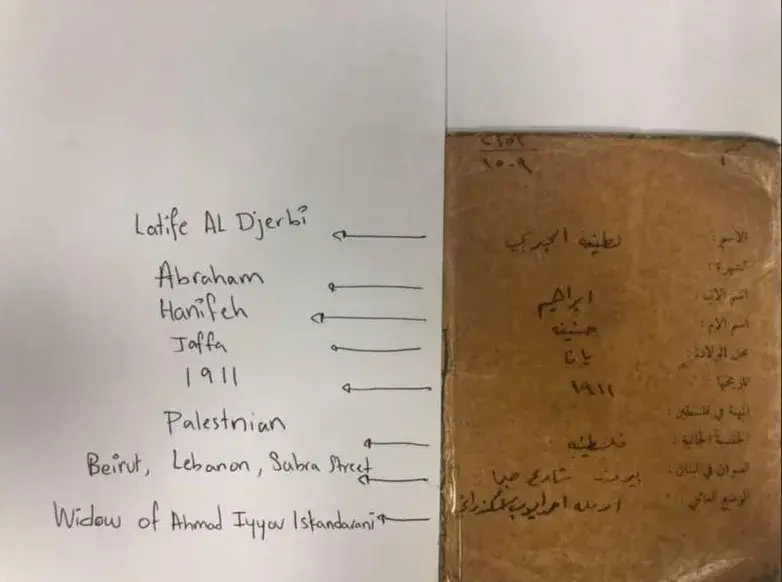 Latife AL Djerbi
Abraham
Hanifeh
Jaffa
1911
Palestnian
Beirut, Lebanon, Sabra Street
Widow of Ahmad Iyyov Iskandarani
١٥-٩
١
الاسم: لطيفه الجربي
الشهرة:
اسم الاب: ابراهيم
اسم الام: حنيفه
محل الولادة: يافا
تاريخها ١٩١١
المهنة في فلسطين:
الجنسية الحالية: فلسطينيه
العنوان في لبنان: بيروت شارع صبرا
الوضع العائلي: ارمله احمد ايوب اسكندراني